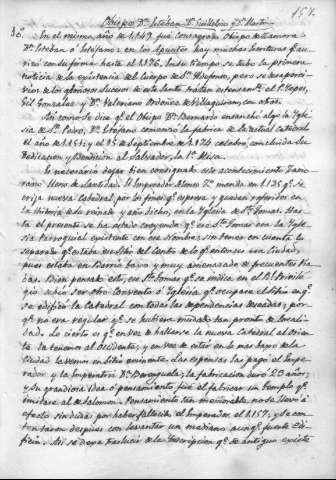 151.
Obispo Dn. Esteban Dn. Guillelmo y Dn. Martin
36. En el mismo, año de 1149 fue consagrado Obispo de Zamora
Dn. Esteban ó Estefano: en los Apuntes hay muchas Escrituras que
con su firma hasta el 1176. En su tiempo se tubo la primera
noticia de la existencia del Cuerpo de Sn. Ildefonso, pero se
los gloriosos sucesos de este Santo tratan estensamte. el P. Yepes,
Gil Gonzalez y Dn. Valeriano Ordoñez de Villaquiran con otros.
Asi como se dice qe. el Obispo Dn. Bernardo ensanchó algo la Ygle-
sia de Sn. Pedro, Dn. Estefano comenzó la fabrica de la actual catedral
el año de 1151 y 15 de Septiembre de 1174 celebró, concluida su
Dedicacion y Bendicion al Salvador, la 1ª Misa.
Es necesario dejar bien consignado este acontecimiento Zamo-
rano lleno de santidad. El Emperador Alonso 7º manda en 1135 qe. se
erija nueva Catedral por los fines qe. espresa y quedan referidos en
la historia de su reinado y año dicho, en la Yglesia de Sto. Tomas. Has-
ta el presente se ha estado creyendo qe. ese Sto. Tomas era la Ygle-
sia Parroquial existente con ese Nombre, sin tener en cuenta lo
separado qe. estaba ese Sitio del Centro de lo qe. entonces era Ciudad,
pues estaba en Barrio bajo y muy amenazado de frecuentes ria-
das. Bien pensado esto, ese Sto. Tomas qe. se indica en el Rl. Privile-
gio debió ser otro Convento ó Yglesia qe. ocupara el Sitio en qe.
se edificó la Catedral con todas las dependencias deseadas; por
qe. no era regular qe. se hubiera mudado tan pronto de locali-
dad. Lo cierto es qe. en vez de hallarse la nueva Catedral al Orien-
te la tenemos al Occidente, y en vez de estar en lo mas bajo de la
Ciudad la vemos en Sitio eminente. Las expensas las pagó el Empe-
rador y la Emperatriz Dª Berenguela; la fabricacion duró 23 años;
y su grandiosa idea ó pensamiento fué el fabricar un Templo qe.
imitase al de Salomon. Pensamiento tan memorable no se llevó á
efecto sin duda por haber fallecido el Emperador el 1157, y se con-
tentaron despues con levantar un mediano aunqe. fuerte Edi-
ficio. Asi se deja traslucir de la Inscripcion qe. de antiguo existe